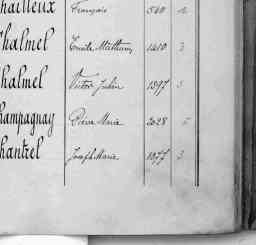 hailleux François 540 2
Chalmel Emile Mathurin 1410 3
halmel Victor Julien 1397 5
hampagnay Pierre Marie 2028 5
hantrel Joseph Marie 1077 3